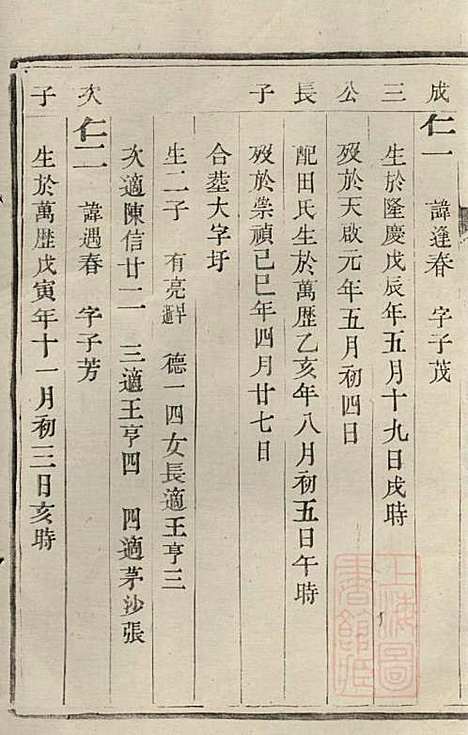 成三公長子　次子
仁一　諱逢春　字子茂
生於隆慶戊辰年五月十九日戌時
歿於天啟元年五月初四日
配田氏生於萬歷乙亥年八月初五日午時
歿於崇禎己巳年四月廿七日
合塟大字圩
生二子　有亮　德一四女長適王亨三
次適陳信廿二　三適王亨四　四適茅沙張
仁二　諱遇春　字子芳
生於萬歷戊寅年十一月初三日亥時